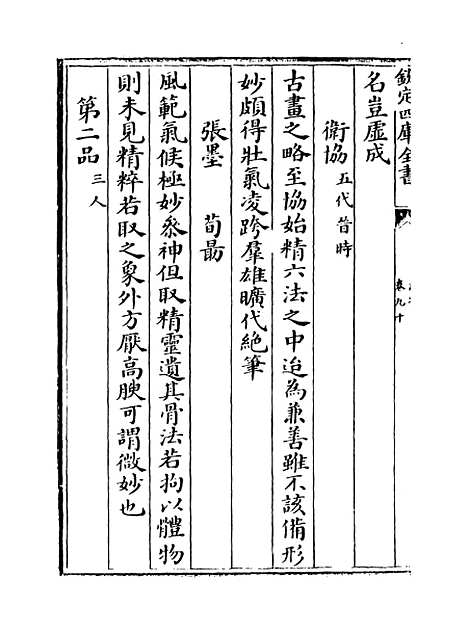 欽定四庫全書
卷九十
名豈虛成
衛協五代晉時
古畫之略至協始精六法之中迨為兼善雖不該備形
妙頗得壯氣凌跨羣雄曠代絶筆
張墨 荀勗
風範氣候極妙叅神但取精靈遺其骨法若拘以體物
則未見精粹若取之象外方厭高腴可謂微妙也
第二品三人